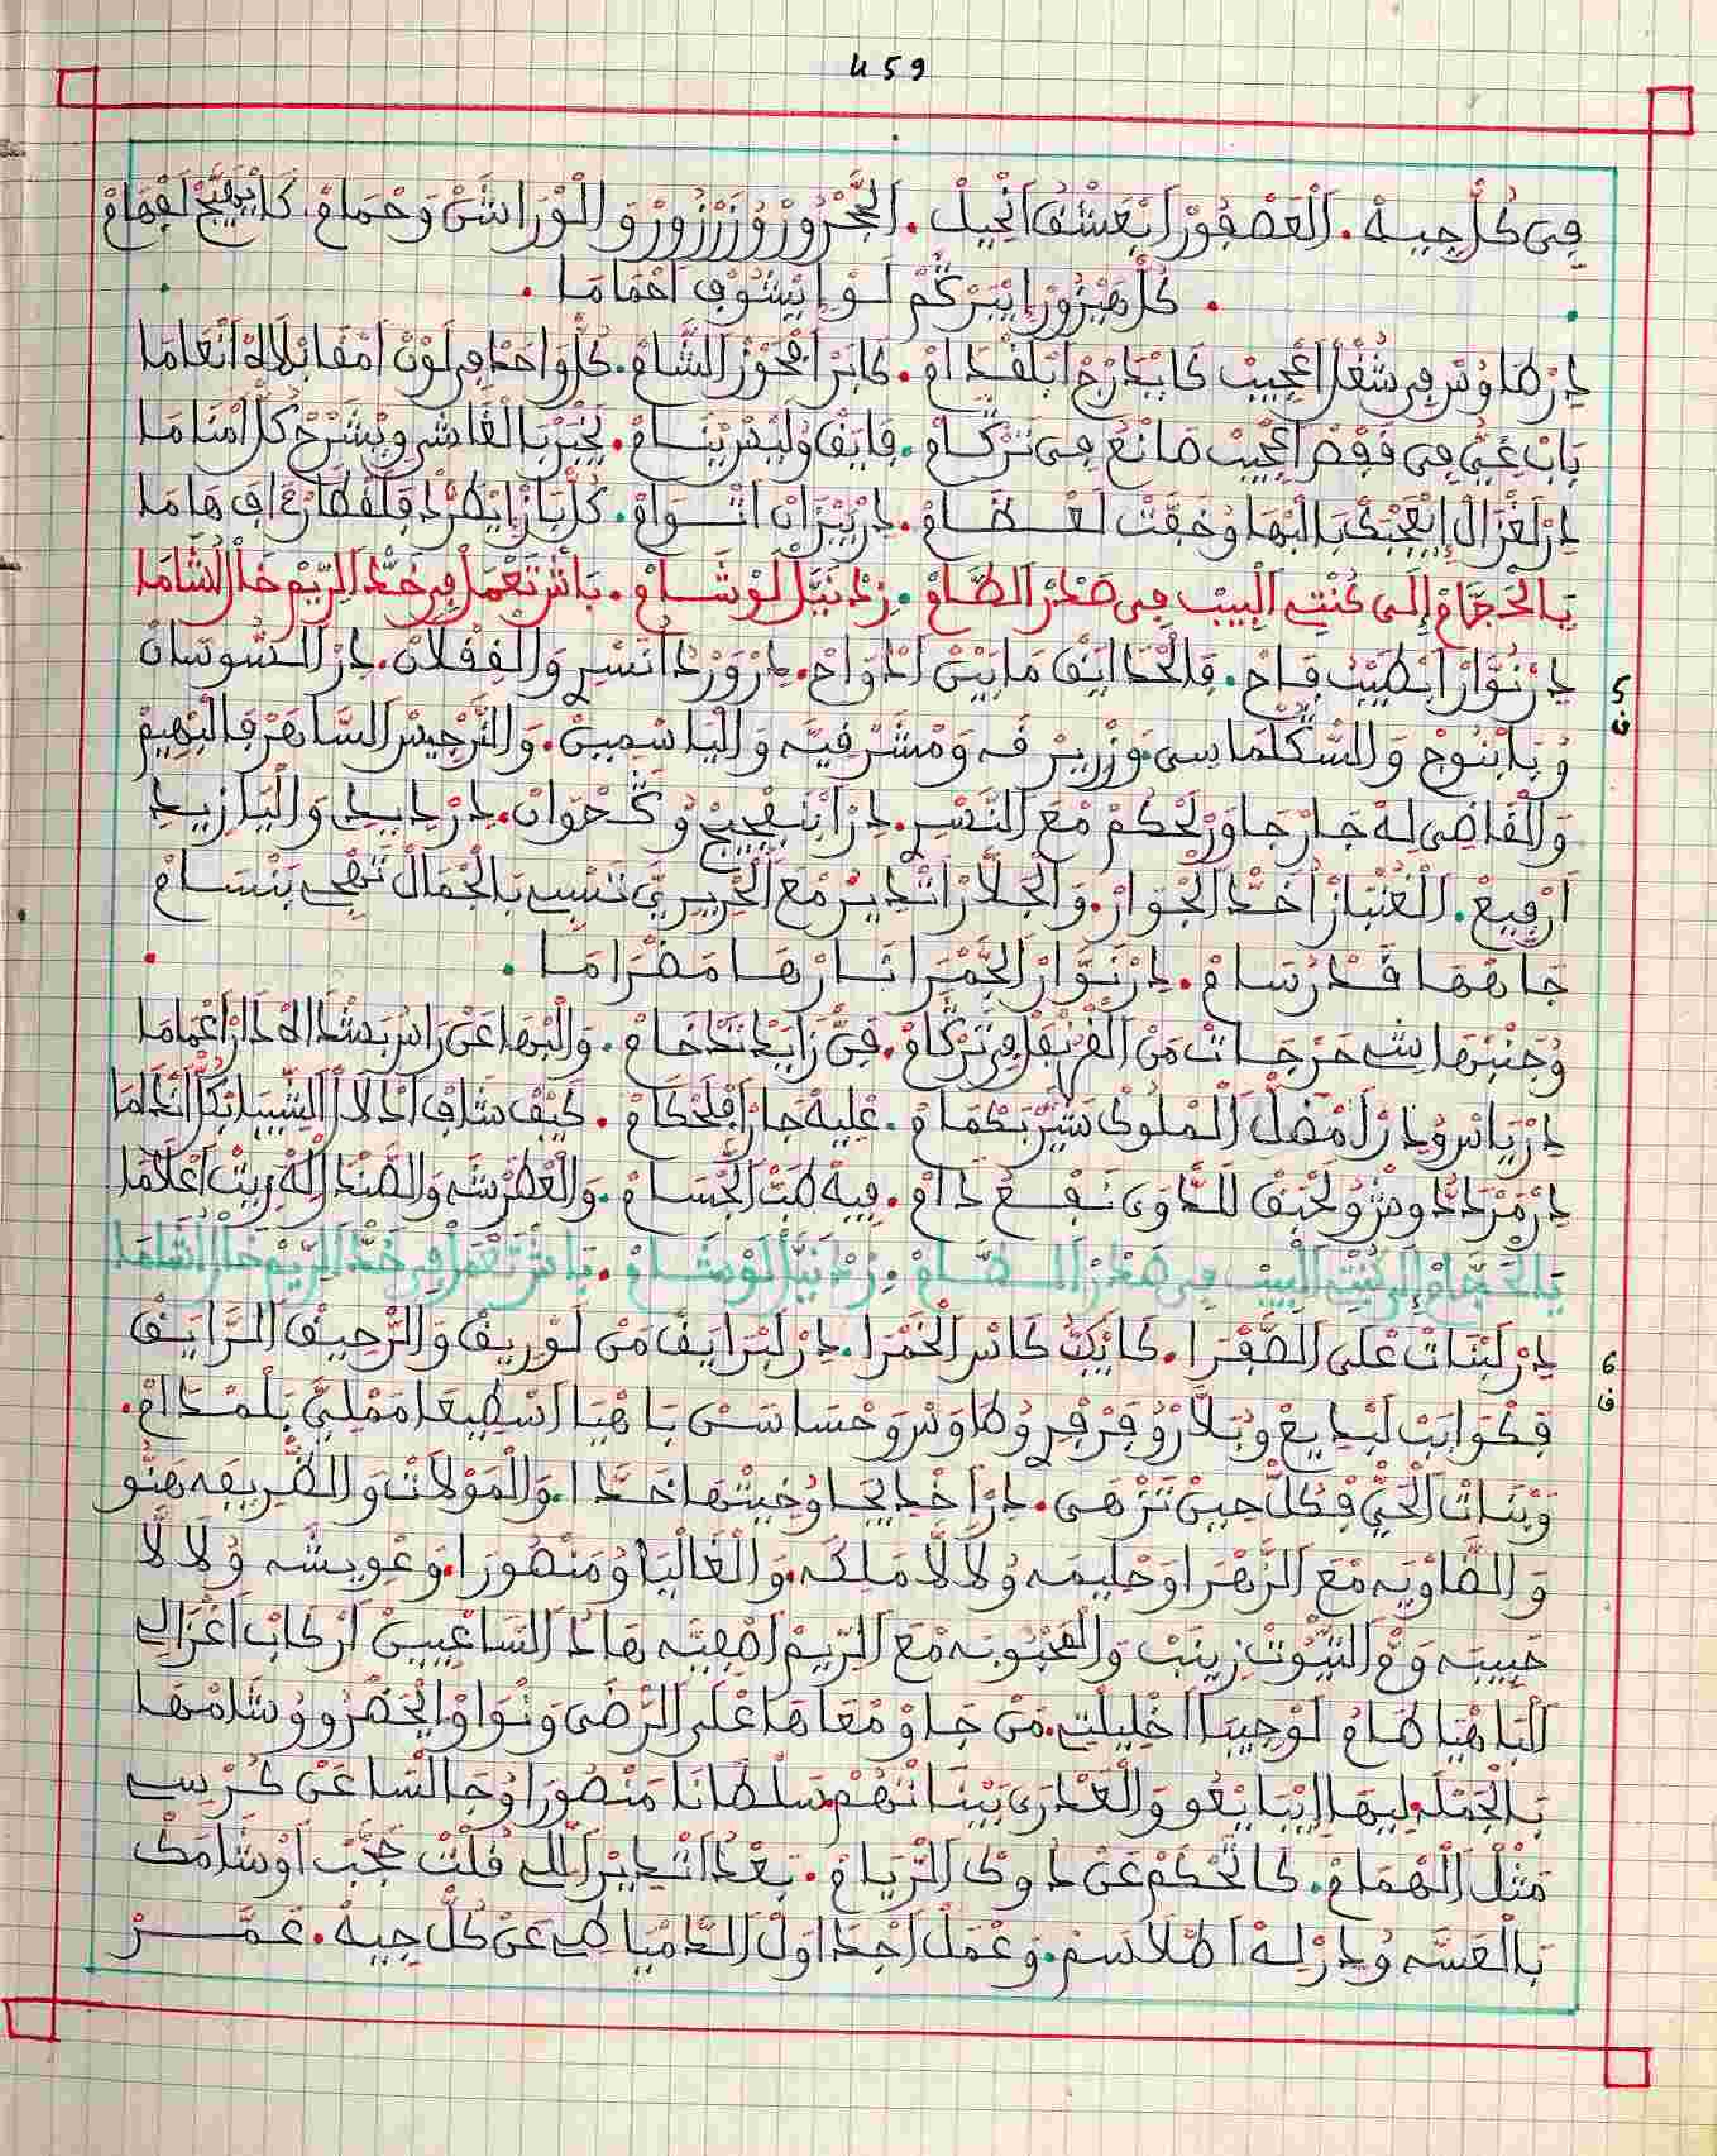 459
في كل جيه . العصفور ايعشق انحيل . الحجروز وزرزور و الورانشن وحمام . كايهيج لفهام
. كل هيزور ايبركم لو ايشوف احماما .
در طاوس في شغل اعجيب كايدارج ابلفدام . كابر افحوز الشام . كل واحد في لون امقابلاه انعاما
باب غني في قفص اعجيب صانع في تركام . فايق وليس ينام . يخبر بالغاشي ويشرح كل امناما
در لغزال ايعجبك بالبها وخفت لعضام . در بيزان اتوام . كل باز ايطرد فلفطارع اف هاما
يالحجام إلى كنت لبيب في صدر الطام . زد نيل لوشام . باش تعمل في خد الريم خال الشاما
در نوار ايطيب فاح . فالحدايق مابين ادواح . در ورد انسر والفيلان . در السوسان
5
ف
وبابنوج والسكلماسي وزريرقه ومشرفيه والياسمين . والنرجيس الساهر فالبهيم
والقاضي له جار جاور لحكم مع النسر . در ابنفجيج وكحوان . در ديدي واليازيد
ارفيع . الغنباز اخد الجوار . والجلار اتدير مع الحريري تنسب بالجمال تهجي بنسام
جاهها قدر سام . در نوار الحمرا نارها مضراما .
وجنبها شي حرجات من القرنفل في تركام . في زايد تدخام . والبها عن راس بشداه دار اعماما
در ياس ودر لمضل الملوك شير بكمام . عليه جار افلحكام . كيف شاف ادلال الشيبا بكا اندلما
در مردادوش ولحبق للدوى نفع دام . فيه طب الجسام . والعطرشه والصندا له ريت اعلاما
يالحجام إلى كنت لبيب في صدر الطام . زد نيل لوشام . باش تعمل في خد الريم خال الشاما
در لبنات على الصفرا . كايكب كاس الخمرا . در لبرايق من لوريق والرحيق الرايق
6
ف
فكوايب لبديع وبلار وقرفر وطاوس وحساسن با هيا اسطيعا مملي بلمدام .
وبنات الحي فكل حين تزهى . در اخديجا وخيتها حدا . والمولات والظريفه هنو
والضاويه مع الزهرا وحليمه ولالا ملكه . والغاليا ومنصورا . وعويشه ولالا
حبيبه وم البنوت زينب والمحبوبه مع الريم اصفيه هاد الساعيين اركاب اغزالي
الباهيا طام لوجيبا اخليلتي . من جاو معاها على الرضى ونواو الحضرو وشامها
بالجمله ليها ايبايعو والعدرى بيناتهم سلطانا منصورا وجالسا عن كرسي
مثل الهمام . كاتحكم عن دوك الريام . بعد اتدير اللي قلت حجب اوشامك
بالعسه ودر له اطلاسم . وعمل اجداول الدمياطي عن كل جيه . عمر